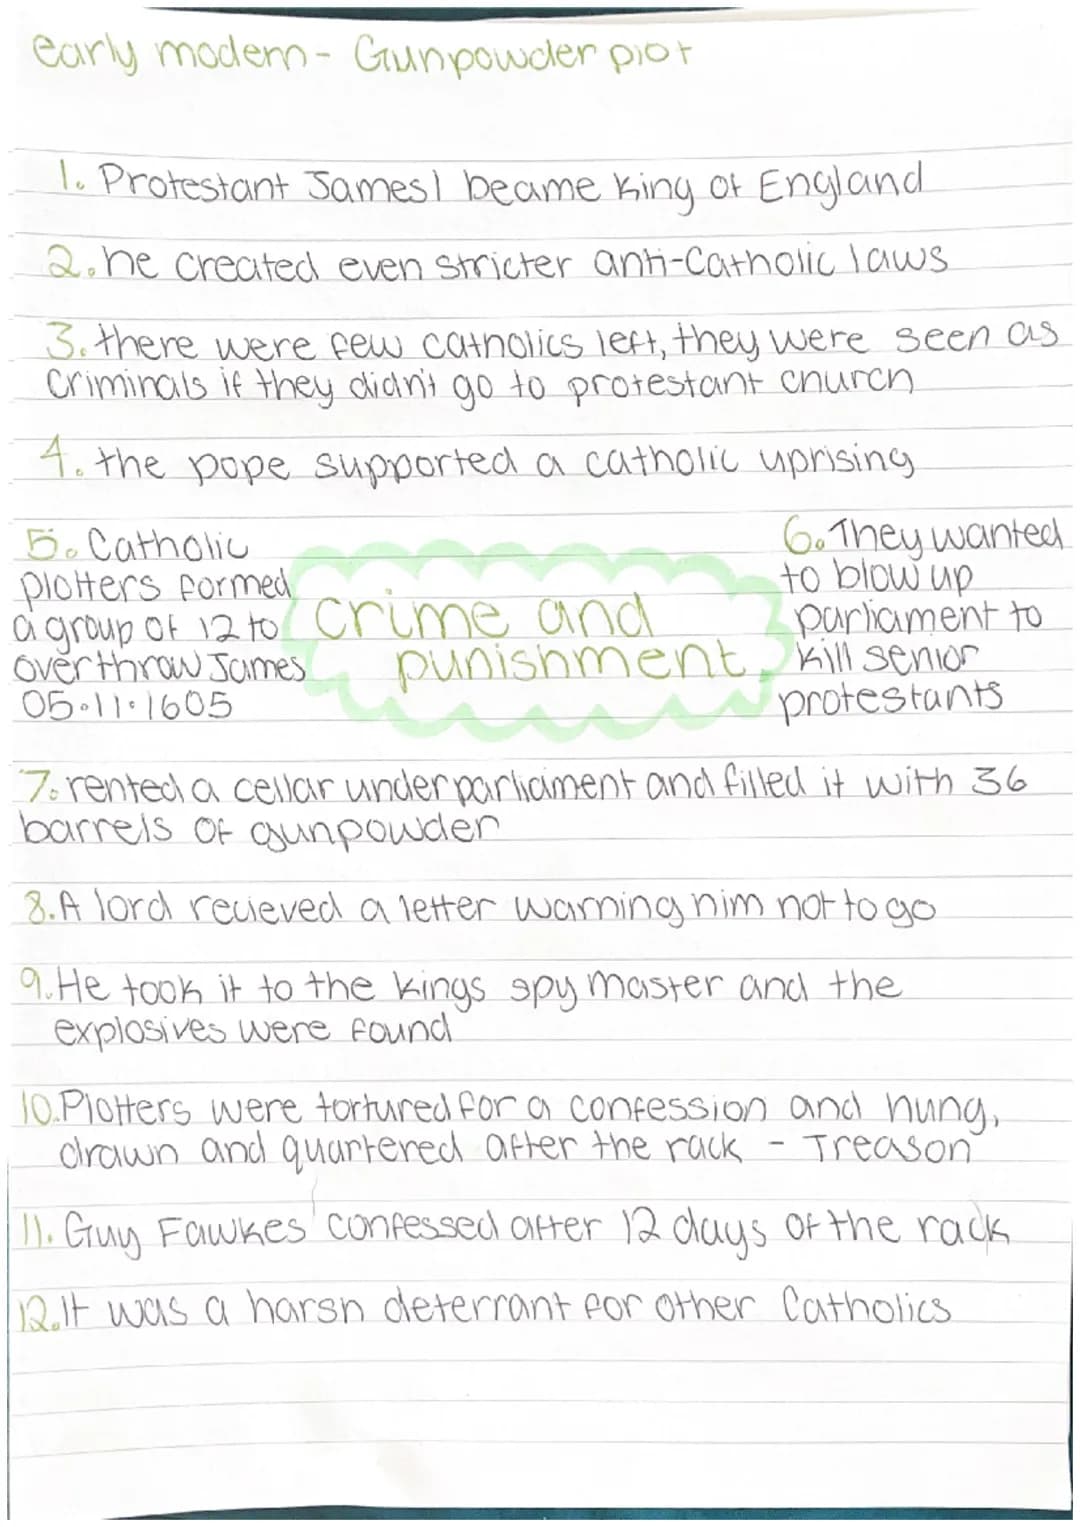 early modern - Gunpowder plot
1. Protestant James I beame King of England
2. he created even stricter anti-Catholic laws
3. there were few catholics left, they were seen as
criminals if they didn't go to protestant church
4. the pope supported a catholic uprising
5. Catholic
plotters formed
a group of 12 to
overthrow James
05.11.1605
crime and
punishment
6. They wanted
to blow up
parliament to
kill senior
protestants
7. rented a cellar under parliament and filled it with 36
barrels of gunpowder
8. A lord recieved a letter warning him not to go
9. He took it to the kings spy master and the
explosives were found
10. Plotters were tortured for a confession and hung,
drawn and quartered after the rack - Treason
11. Guy Fawkes confessed after 12 days of the rack
12. It was a harsh deterrant for other Catholics